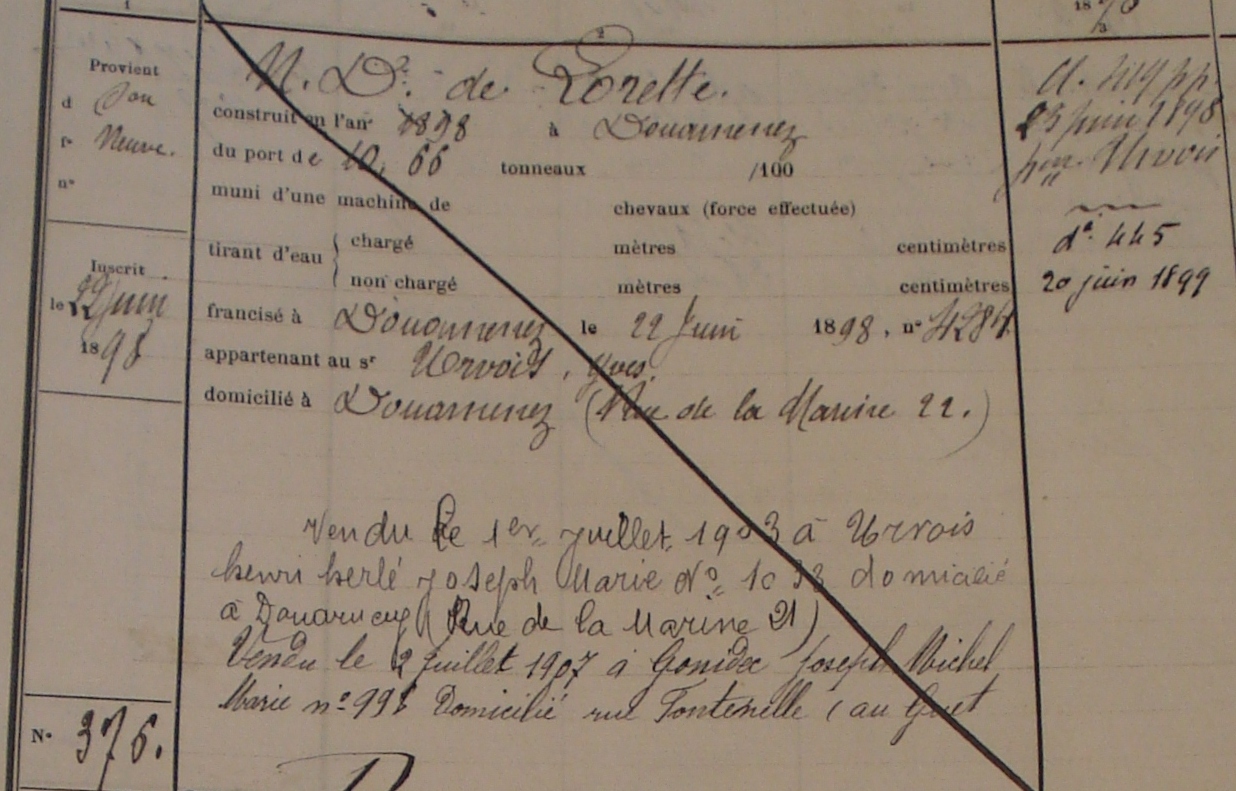 1
Provient
d Son
fe Neuve.
n°
Inscrit
le 22 Juin
1898
N° 376.
2
N. De. de Lorette.
construit en l'an 1898 à Douarnenez
du port de 10, 66 tonneaux /100
muni d'une machine de chevaux (force effectuée)
tirant d'eau { chargé mètres centimètres
non chargé mètres centimètres
francisé à Douarnenez le 22 Juin 1898, n° 4284
appartenant au sr Urvois, Yves.
domicilié à Douarnenez (Rue de la Marine 22.)
Vendu le 1er juillet 1903 à Urvois
henri herlé joseph Marie No 1033 domicilié
à Douarnenez (Rue de la Marine 21)
Vendu le 2 juillet 1907 à Gonidec Joseph Michel
Marie n° 998 Domicilié rue Fontenelle (au Guet
18
3
23 juin 1898
Urvois
d° 445
20 juin 1899